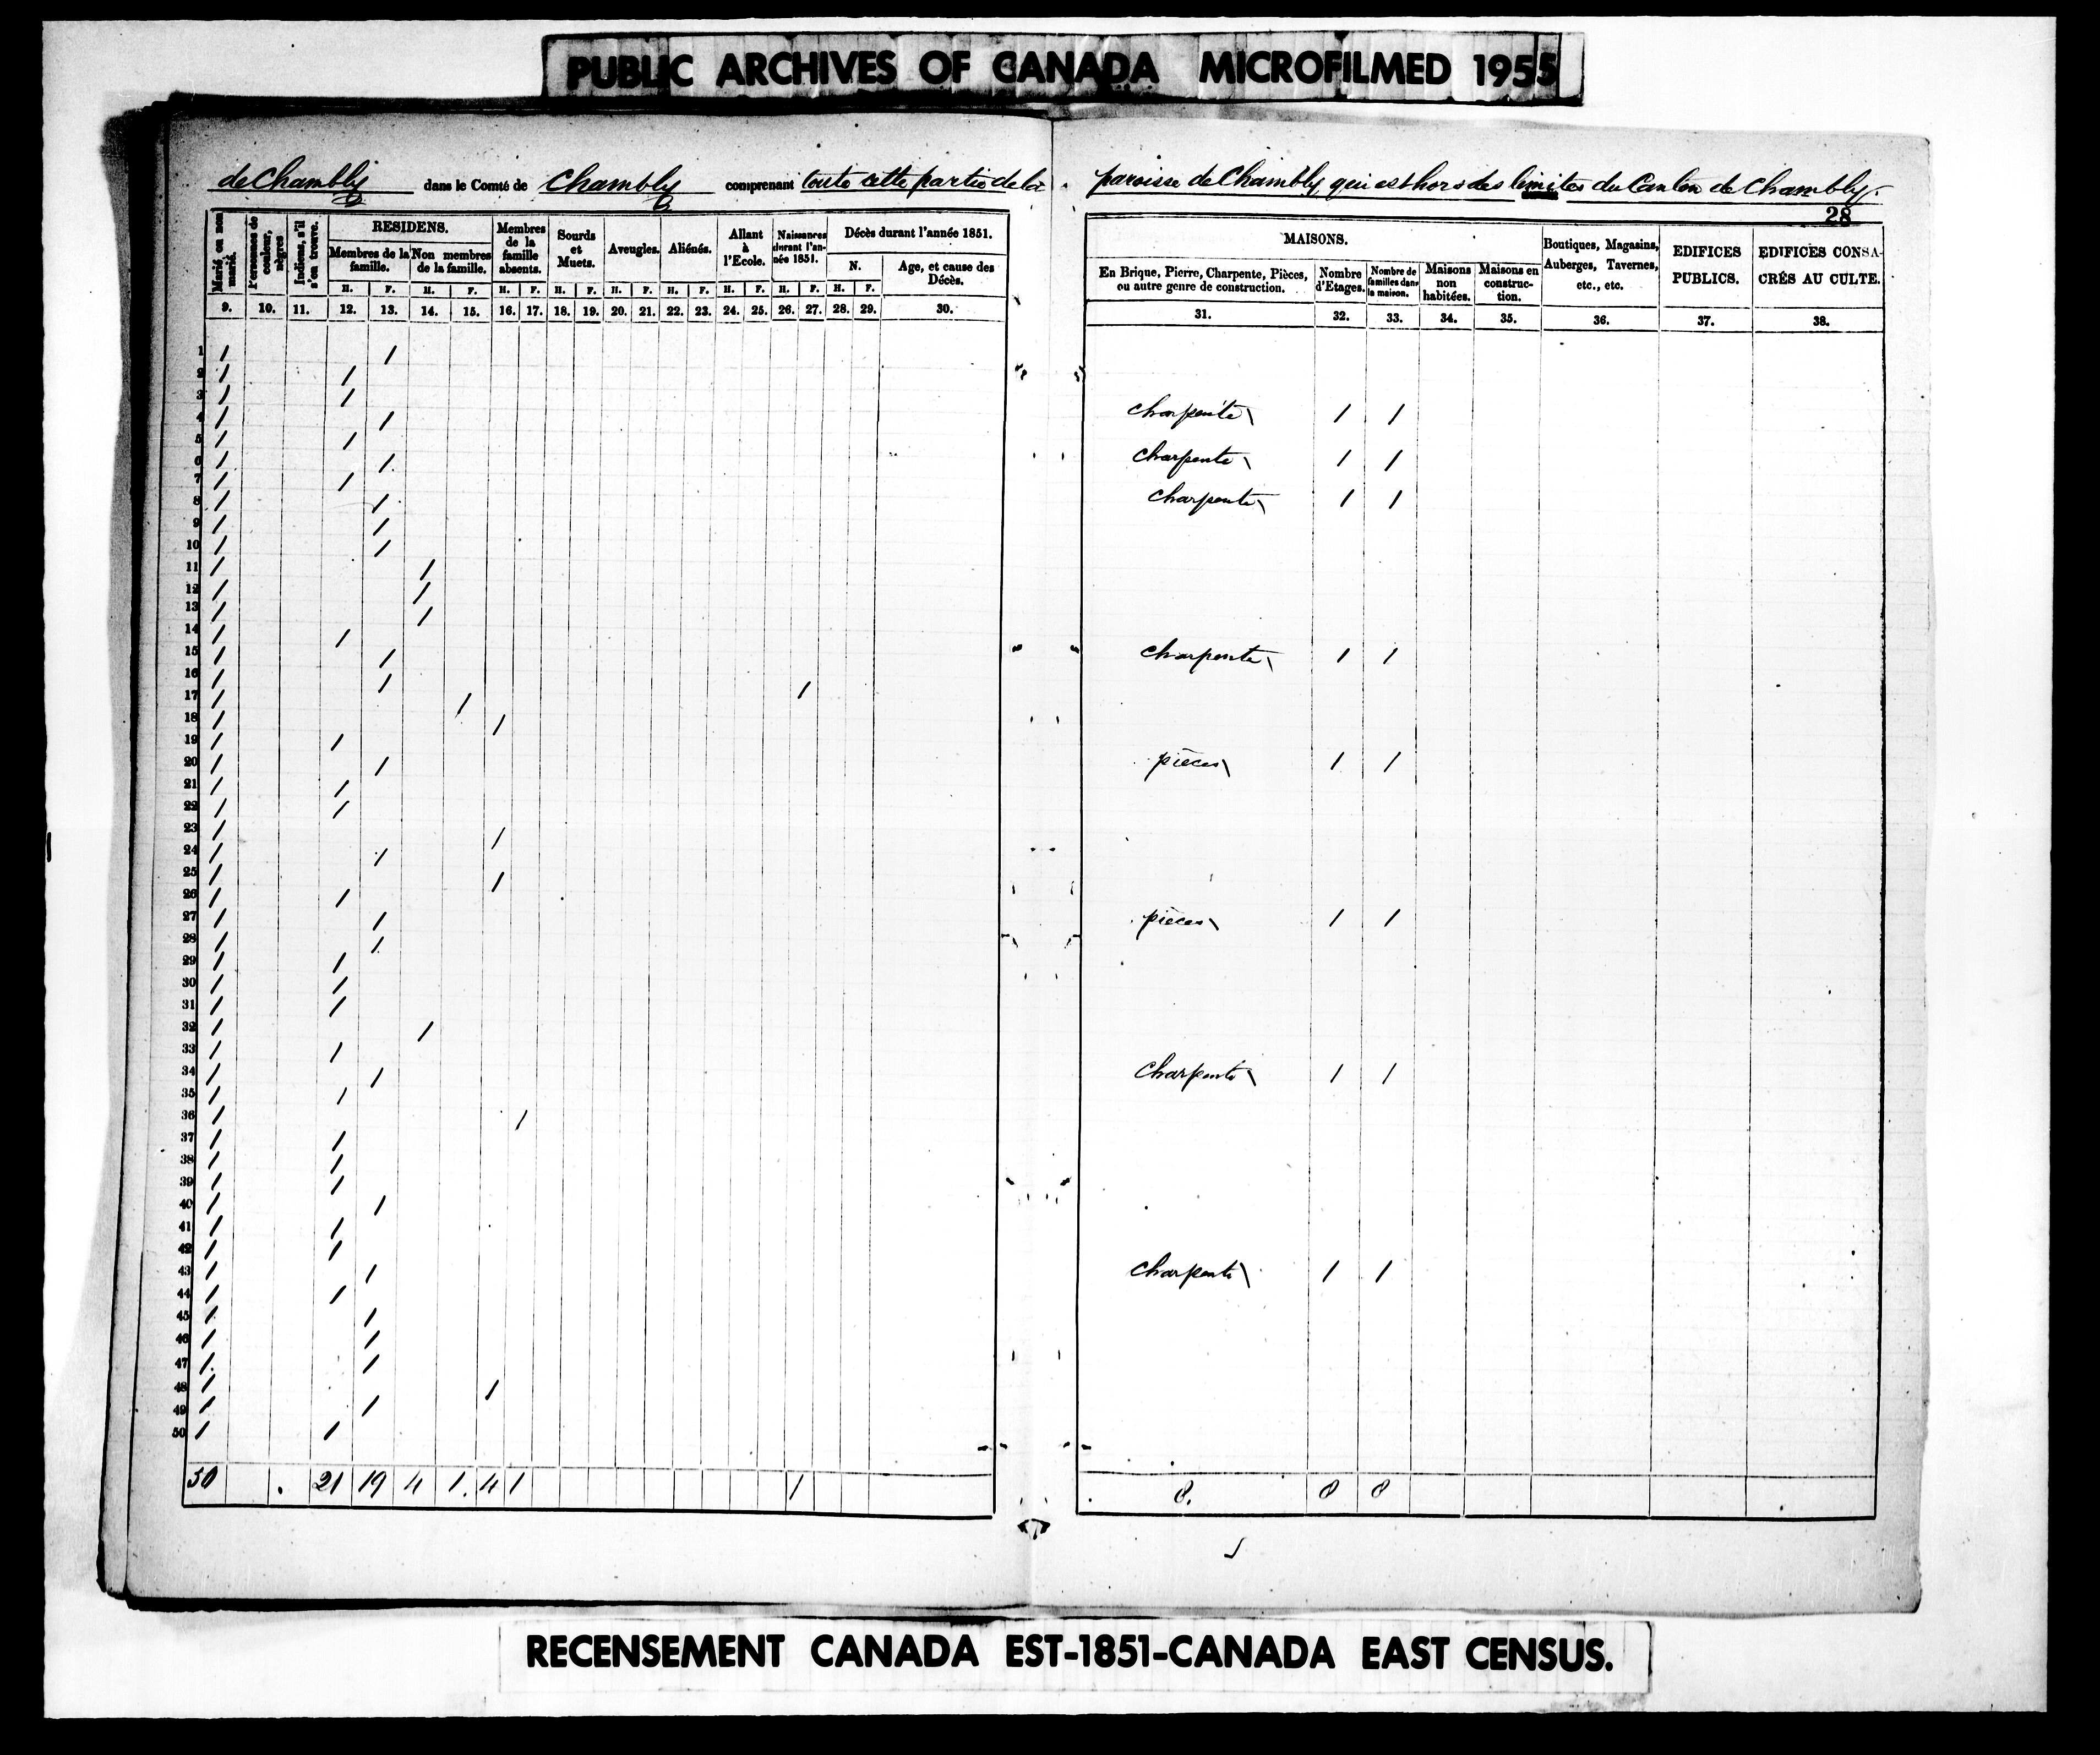 PUBLIC ARCHIVES OF CANADA MICROFILMED 1955
de Chambly dans le Comté de Chambly comprenant toute cette partie de la paroisse de Chambly, qui est hors des limites du Canton de Chambly.
28
Marié, ou non marié.
Personnes de couleur, nègres
Indiens, s'il s'en trouve.
RESIDENS.
Membres de la famille.
Non membres de la famille.
Membres de la famille absents.
Sourds et Muets.
Aveugles.
Aliénés.
Allant à l'Ecole.
Naissances durant l'année 1851.
Décès durant l'année 1851.
N.
Age, et cause des Décès.
H. F. H. F. H. F. H. F. H. F. H. F. H. F. H. F. H. F.
9. 10. 11. 12. 13. 14. 15. 16. 17. 18. 19. 20. 21. 22. 23. 24. 25. 26. 27. 28. 29. 30.
MAISONS.
En Brique, Pierre, Charpente, Pièces, ou autre genre de construction.
Nombre d'Etages.
Nombre de familles dans la maison.
Maisons non habitées.
Maisons en construction.
Boutiques, Magasins, Auberges, Tavernes, etc., etc.
EDIFICES PUBLICS.
EDIFICES CONSACRÉS AU CULTE.
31. 32. 33. 34. 35. 36. 37. 38.
1 / /
2 / /
3 / /
4 / / charpente 1 1
5 / /
6 / / charpente 1 1
7 / /
8 / / charpente 1 1
9 / /
10 / /
11 / /
12 / /
13 / /
14 / /
15 / / charpente 1 1
16 / /
17 / / /
18 / /
19 / /
20 / / pièces 1 1
21 / /
22 / /
23 / /
24 / /
25 / /
26 / /
27 / / pièces 1 1
28 / /
29 / /
30 / /
31 / /
32 / /
33 / /
34 / / charpente 1 1
35 / /
36 / /
37 / /
38 / /
39 / /
40 / /
41 / /
42 / /
43 / / charpente 1 1
44 / /
45 / /
46 / /
47 / /
48 / /
49 / /
50 / /
50 21 19 4 1. 4 1 1 8. 8 8
RECENSEMENT CANADA EST-1851-CANADA EAST CENSUS.